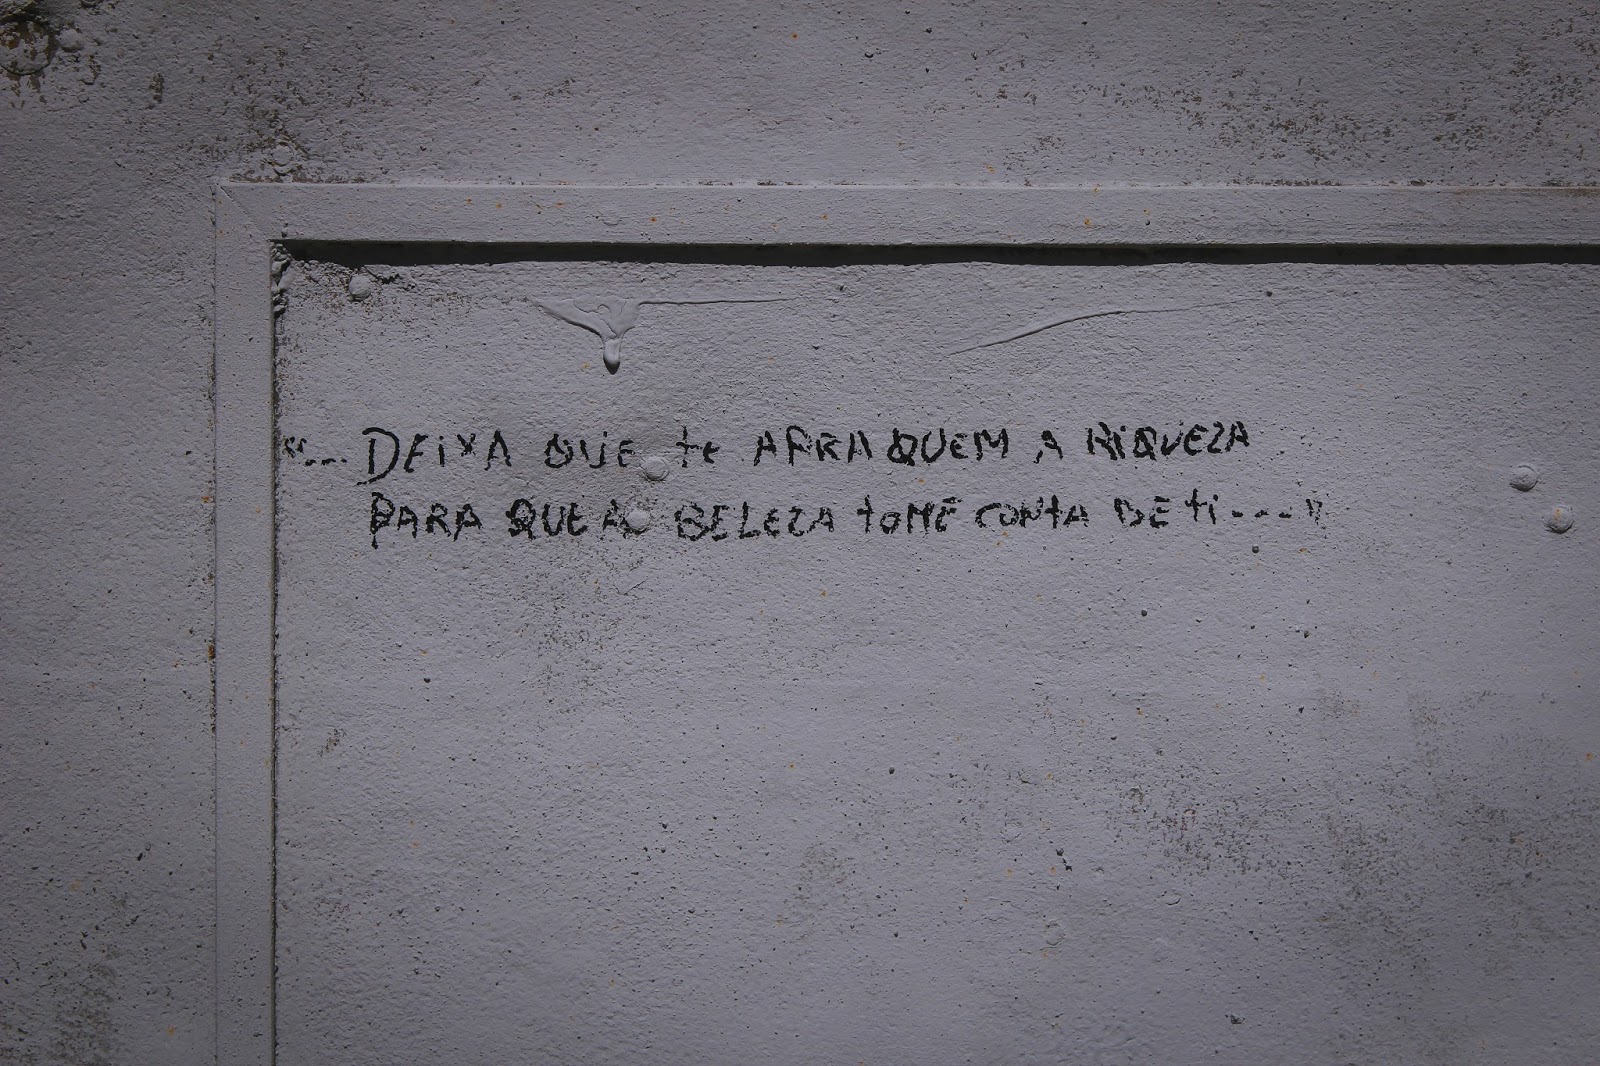 "... DEiXA QUE te AFRAQUEM A RiQUEZA
PARA QUE A BELEZA toME CONtA DE ti ..."